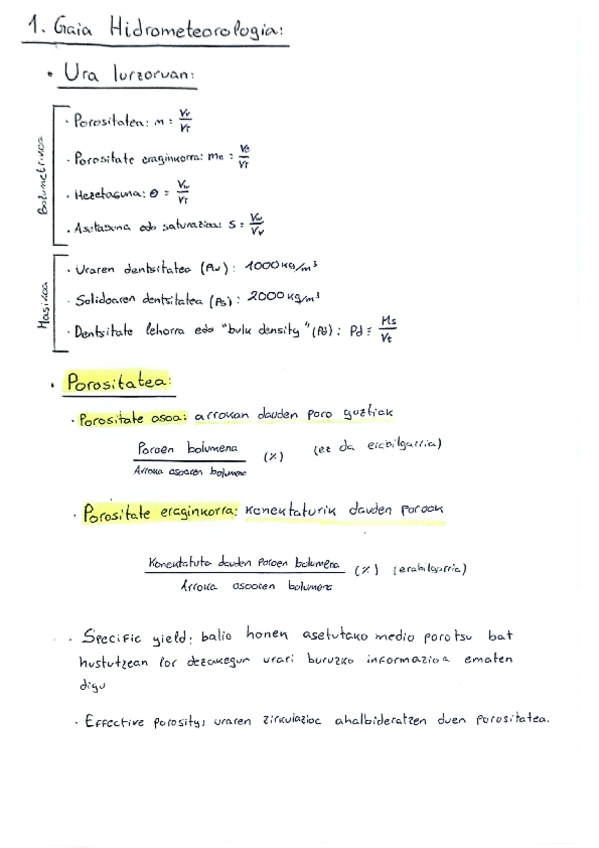 1. Gaia Hidrometeorologia:
• Ura lurzoruan:
Bolumetrikoa
· Porositatea: m = Vv/VT
· Porositate eraginkorra: me =
· Hezetasuna: θ = Vw/VT
· Asetasuna edo saturazioa: S = Vw/Vv
Masikoa
· Uraren dentsitatea (ρw): 1000 kg/m³
· Solidoaren dentsitatea (ρs): 2000 kg/m³
· Dentsitate lehorra edo "bulk density" (ρd): ρd = Ms/Vt
• Porositatea:
· Porositate osoa: arrokan dauden poro guztiak
Poroen bolumena
(%) (ez da erabilgarria)
Arroka osoaren bolumena
· Porositate eraginkorra: konektaturik dauden poroak
Konektatuta dauden poroen bolumena
(%) (erabilgarria)
Arroka osoaren bolumena
· Specific yield: balio honen asetutako medio porotsu bat
hustutzean lor dezakegun urari buruzko informazioa ematen
digu
· Effective porosity: uraren zirkulazioa ahalbideratzen duen porositatea.